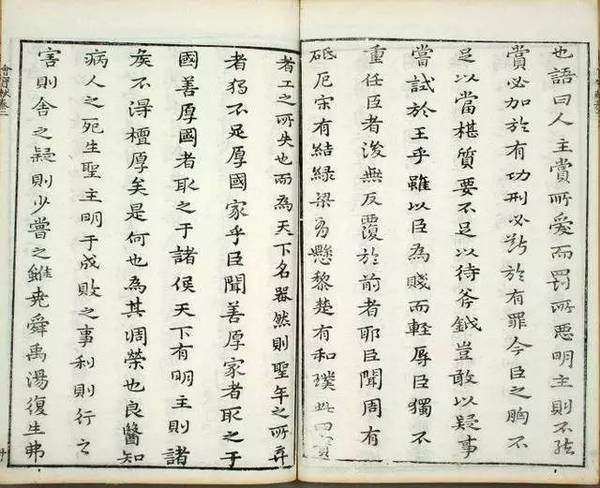 也語曰人主賞所愛而罰所惡明主則不然
賞必加於有功刑必斷於有罪今臣之胸不
足以當椹質要不足以待斧鉞豈敢以疑事
嘗試於王乎雖以臣為賤而輕辱臣獨不
重任臣者後無反覆於前者耶臣聞周有
砥厄宋有結綠梁有懸黎楚有和璞此四寶
者工之所失也而為天下名器然則聖年之所弃
者獨不足厚國家乎臣聞善厚家者取之于
國善厚國者取之于諸侯天下有明主則諸
侯不得檀厚矣是何也為其凋榮也良醫知
病人之死生聖主明于成敗之事利則行之
害則舍之疑則少嘗之雖堯舜禹湯復生弗